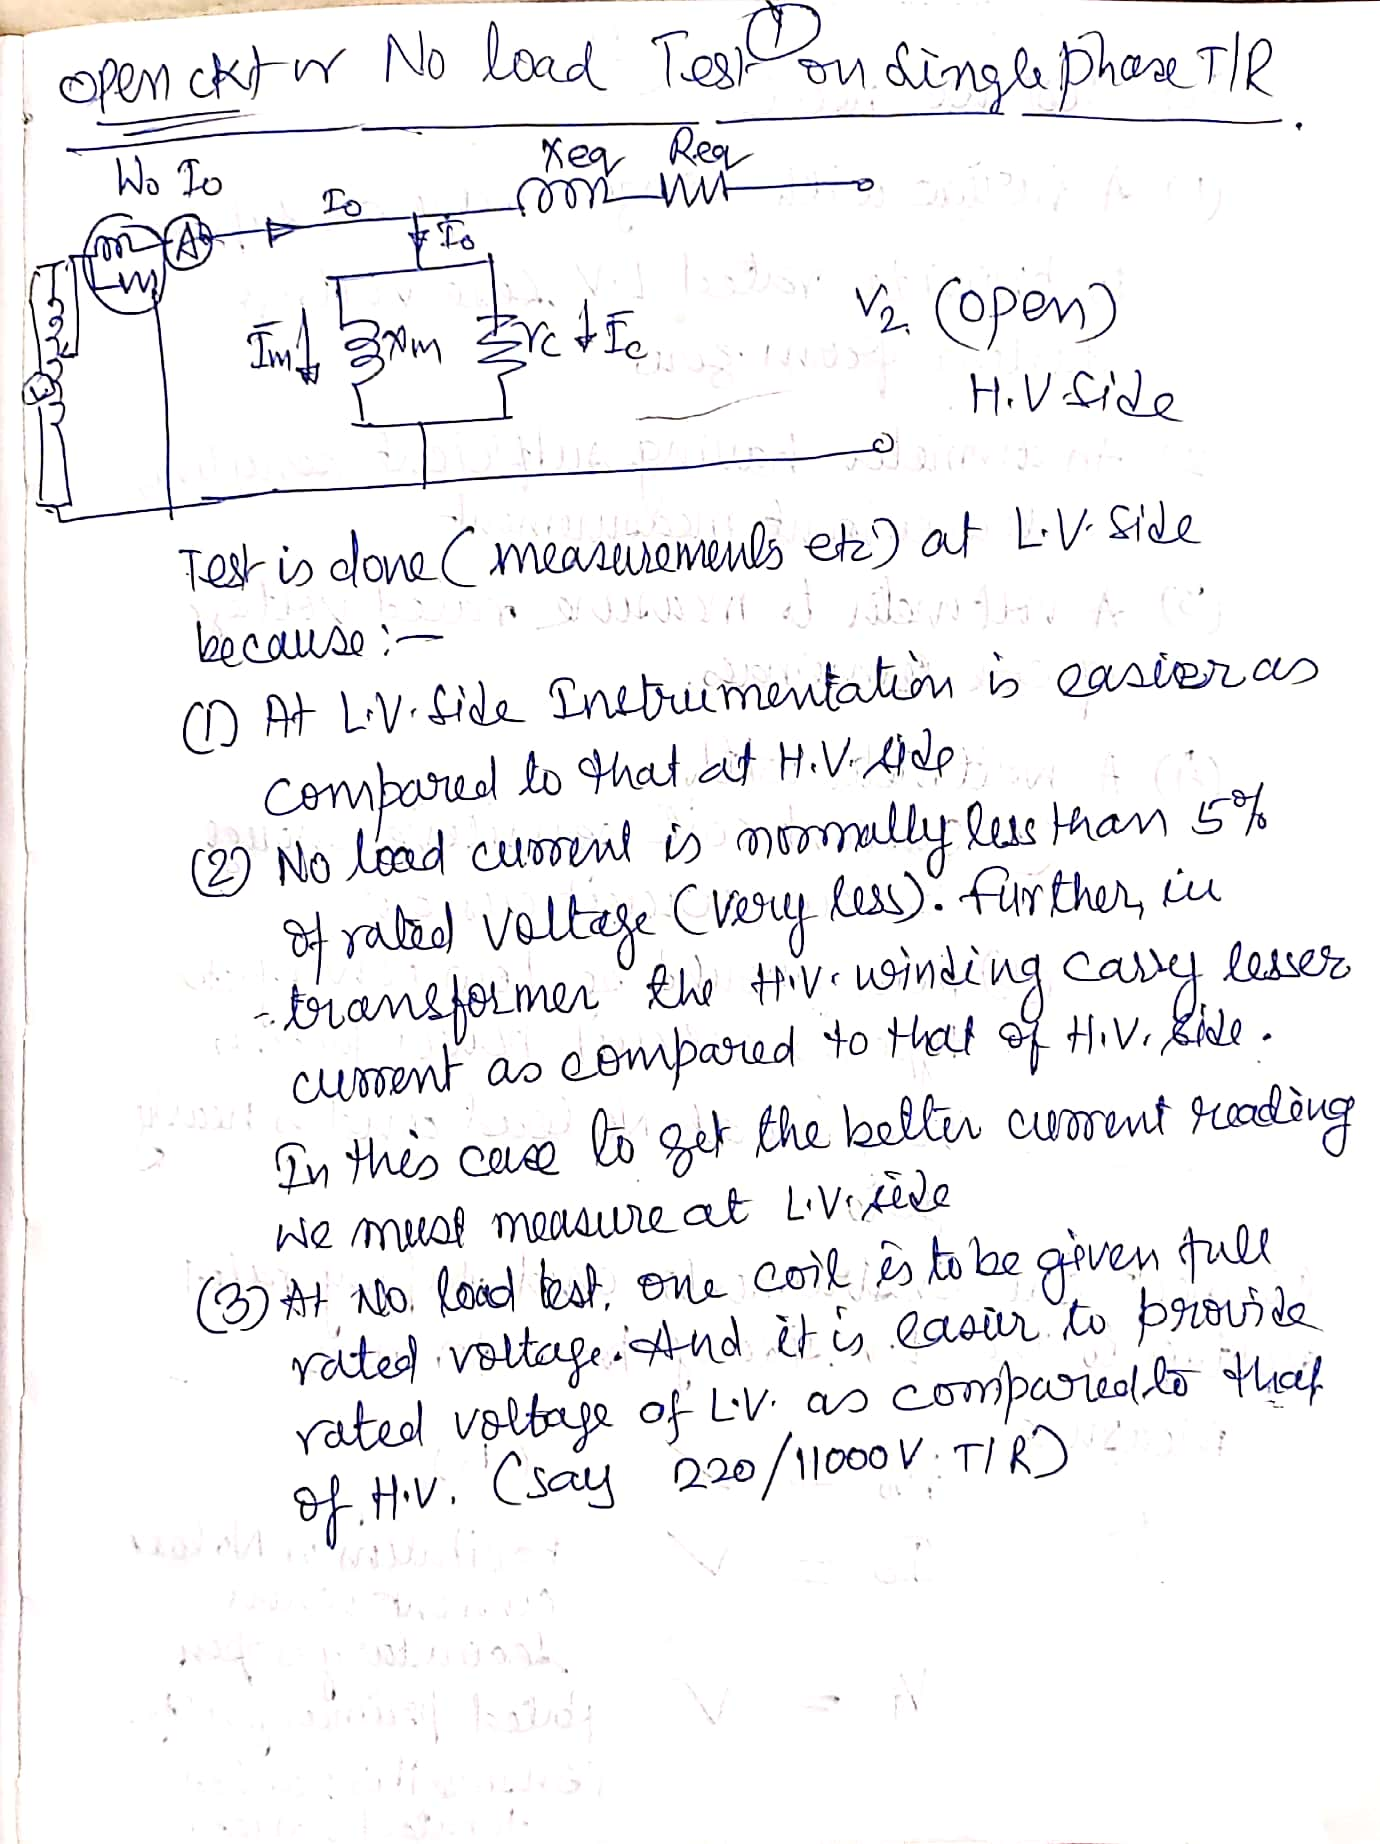 ①
open ckt or No load Test on Single phase T/R
Xeq Req
Wo Io
Io
Io
Im Xm rc Ic
V2 (open)
H.V side
Test is done (measurements etc) at L.V. side
because :-
(1) At L.V. side Instrumentation is easier as
compared to that at H.V. side
(2) No load current is normally less than 5%
of rated voltage (very less). Further, in
transformer the H.V. winding carry lesser
current as compared to that of H.V. side.
In this case to get the better current reading
we must measure at L.V. side
(3) At No. load test, one coil is to be given full
rated voltage. And it is easier to provide
rated voltage of L.V. as compared to that
of H.V. (say 220/11000V T/R)